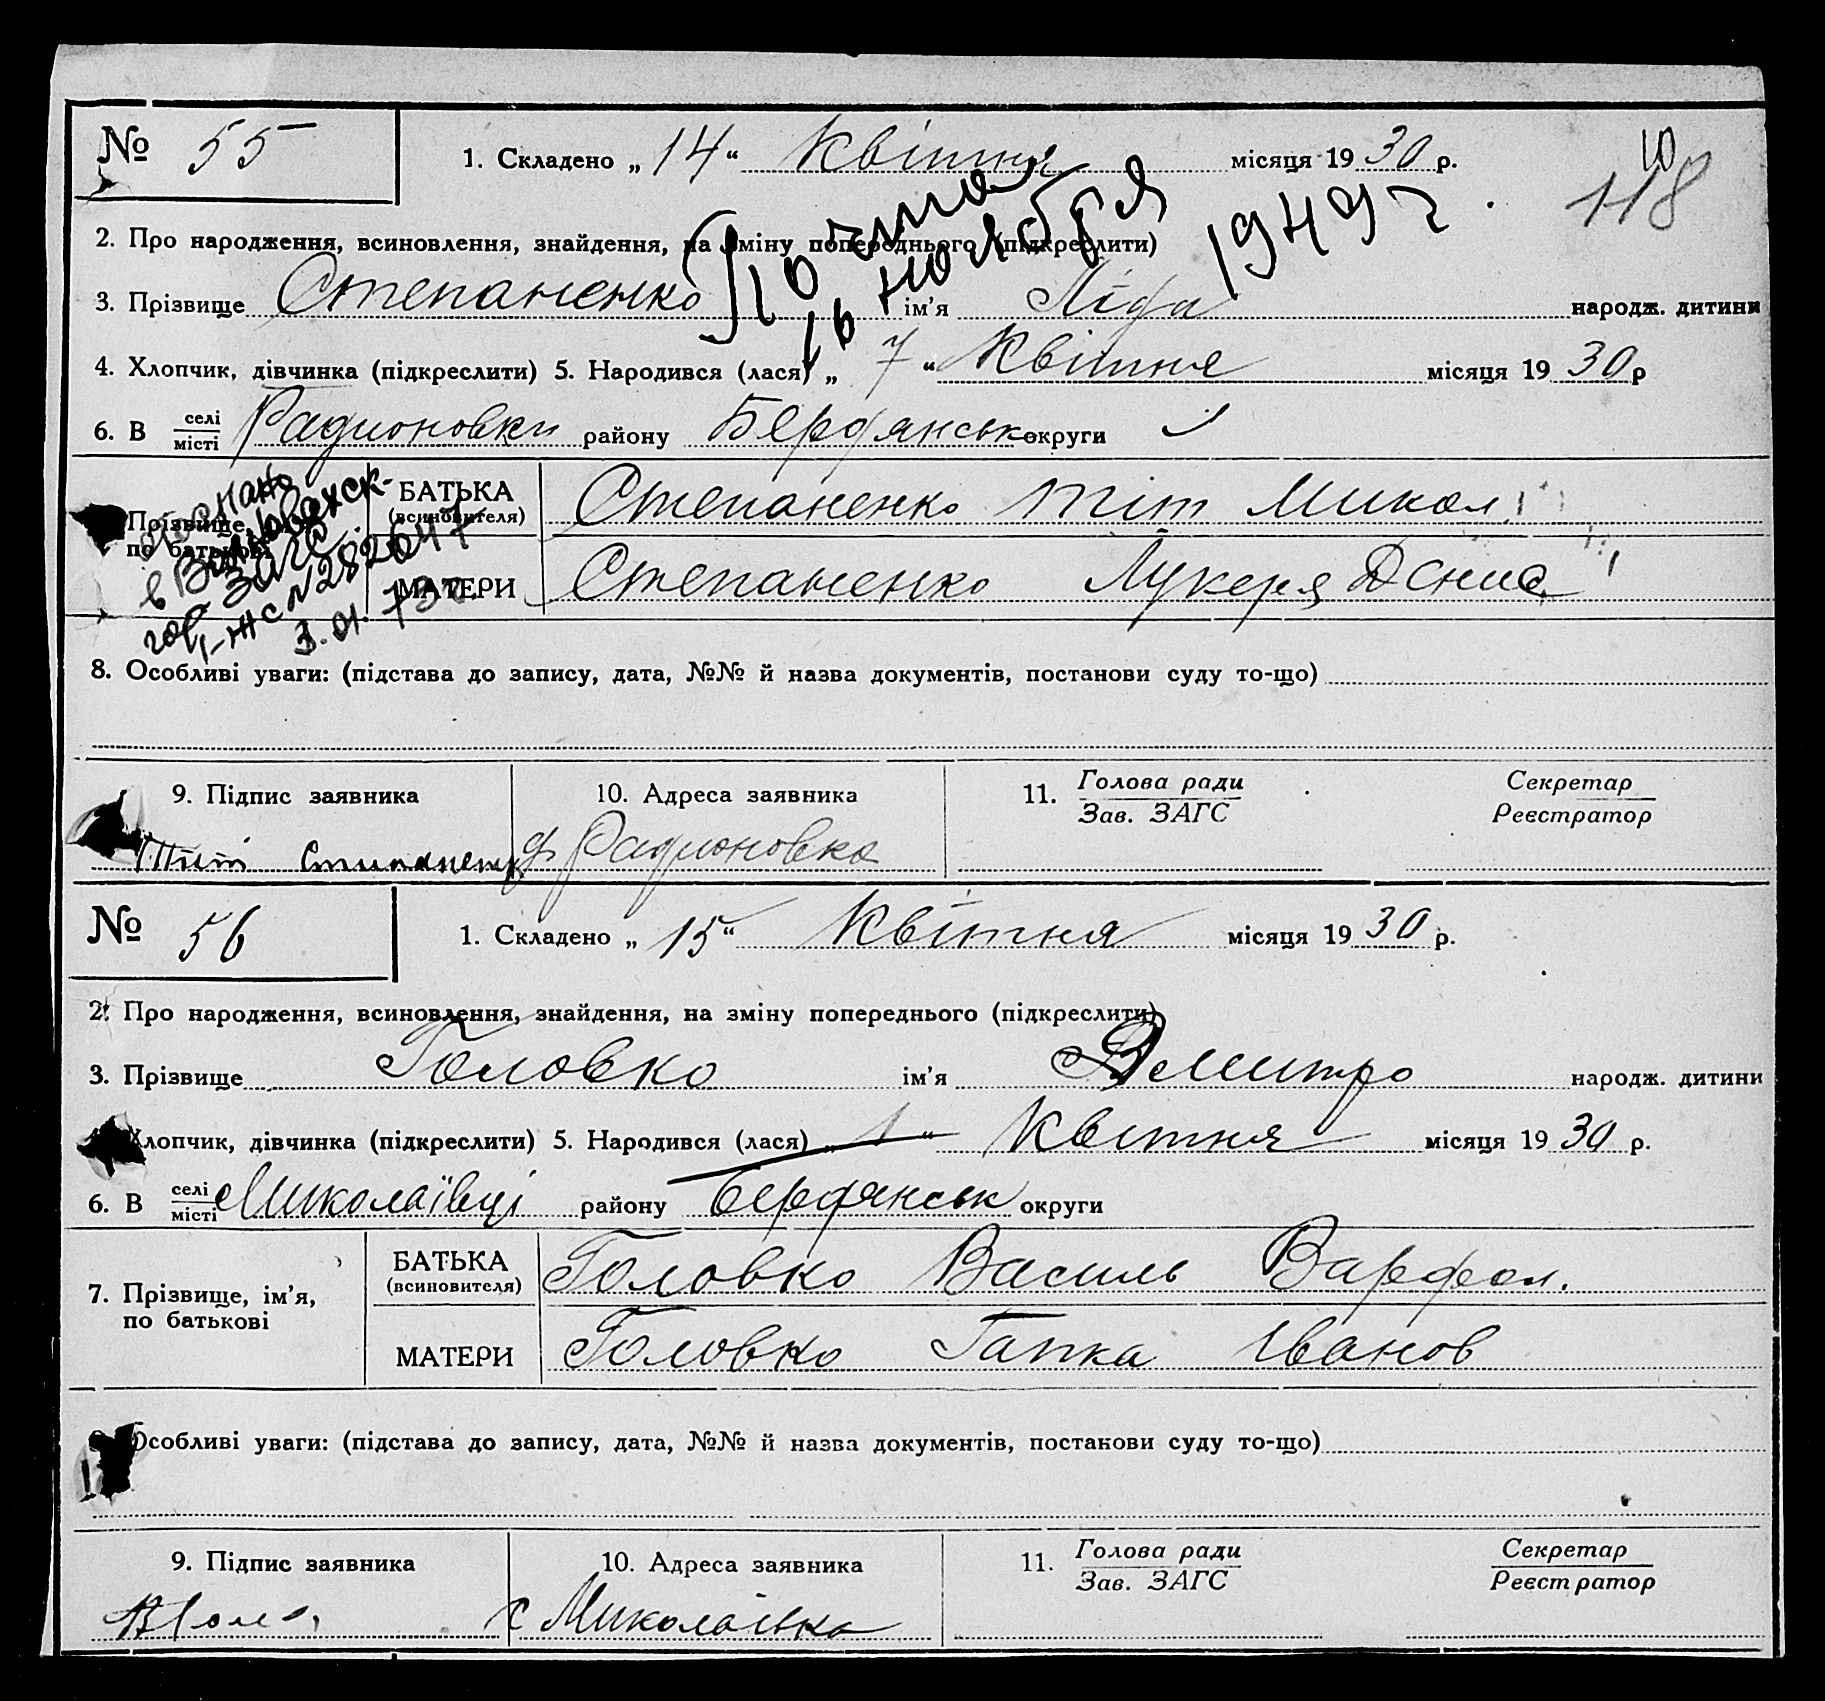 № 55
1. Складено „ 14 “ Квітня місяця 19 30 р.
10
118
2. Про народження, всиновлення, знайдення, на зміну попереднього (підкреслити)
Почта
16 ноября 1949 г.
3. Прізвище Степаненко ім’я Ліда народж. дитини
4. Хлопчик, дівчинка (підкреслити) 5. Народився (лася) „ 7 “ Квітня місяця 19 30 р
6. В селі місті Радионовки району Бердянськ округи
Прізвище,
по батькові
БАТЬКА (всиновителя) Степаненко Тіт Микол.
МАТЕРИ Степаненко Лукеря Денис.
в Волновахск-
гор ЗАГС
I-ЖС № 282647
3.01.73 г.
8. Особливі уваги: (підстава до запису, дата, №№ й назва документів, постанови суду то-що)
9. Підпис заявника
10. Адреса заявника
11. Голова ради
Зав. ЗАГС
Секретар
Реєстратор
Тит
Радионовка
№ 56
1. Складено „ 15 “ Квітня місяця 19 30 р.
2. Про народження, всиновлення, знайдення, на зміну попереднього (підкреслити)
3. Прізвище Головко ім’я Дмитро народж. дитини
Хлопчик, дівчинка (підкреслити) 5. Народився (лася) „ 1 “ Квітня місяця 19 30 р.
6. В селі місті Миколаївці району Бердянськ округи
7. Прізвище, ім’я,
по батькові
БАТЬКА (всиновителя) Головко Василь Варфол.
МАТЕРИ Головко Гапка Іванов
Особливі уваги: (підстава до запису, дата, №№ й назва документів, постанови суду то-що)
9. Підпис заявника
10. Адреса заявника
11. Голова ради
Зав. ЗАГС
Секретар
Реєстратор
с Миколаівка